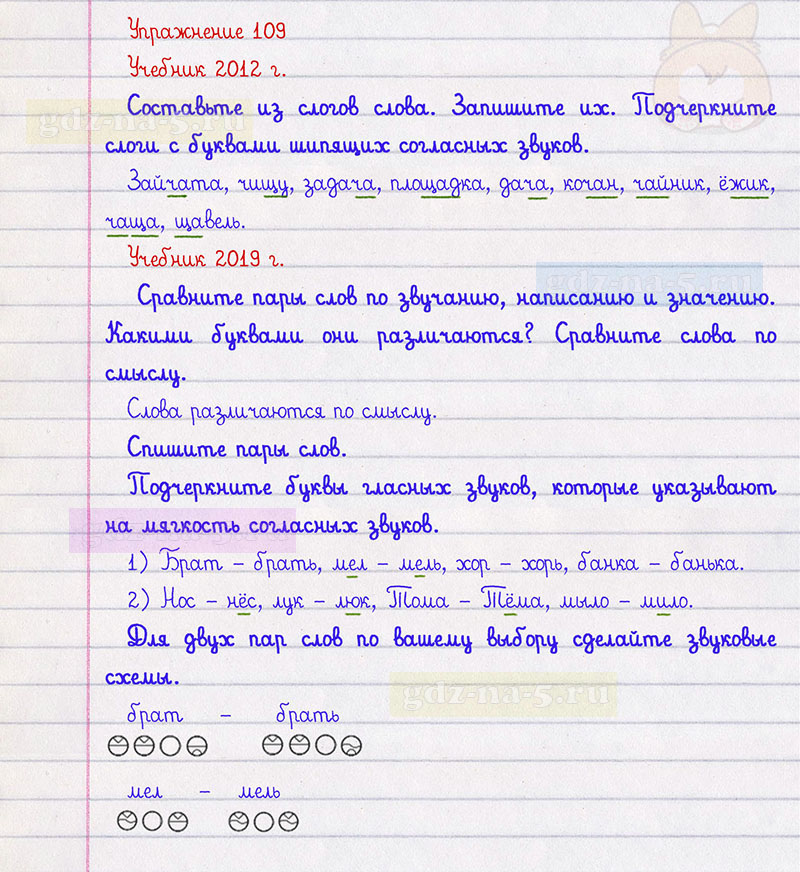 Упражнение 109
Учебник 2012 г.
Составьте из слогов слова. Запишите их. Подчеркните
слоги с буквами шипящих согласных звуков.
gdz-na-5.ru
Зайчата, чищу, задача, площадка, дача, кочан, чайник, ёжик,
чаща, щавель.
Учебник 2019 г.
gdz-na-5.ru
Сравните пары слов по звучанию, написанию и значению.
Какими буквами они различаются? Сравните слова по
смыслу.
Слова различаются по смыслу.
Спишите пары слов.
Подчеркните буквы гласных звуков, которые указывают
на мягкость согласных звуков.
gdz-na-5.ru
1) Брат – брать, мел – мель, хор – хорь, банка – банька.
2) Нос – нёс, лук – люк, Тома – Тёма, мыло – мило.
Для двух пар слов по вашему выбору сделайте звуковые
схемы.
gdz-na-5.ru
брат – брать
мел – мель